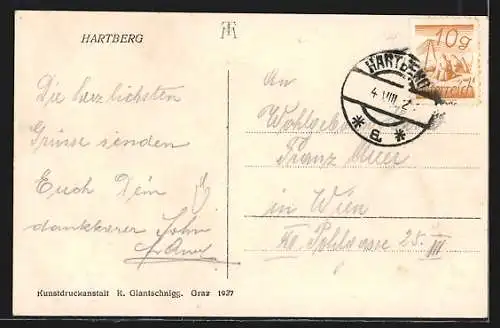 HARTBERG
Die herzlichsten
Grüsse senden
Euch Dein
dankbarer Sohn
An
Franz
in Wien
25
III
HARTBERG
4 VIII 2
* a *
10g
Österreich
Kunstdruckanstalt K. Glantschnigg. Graz 1927